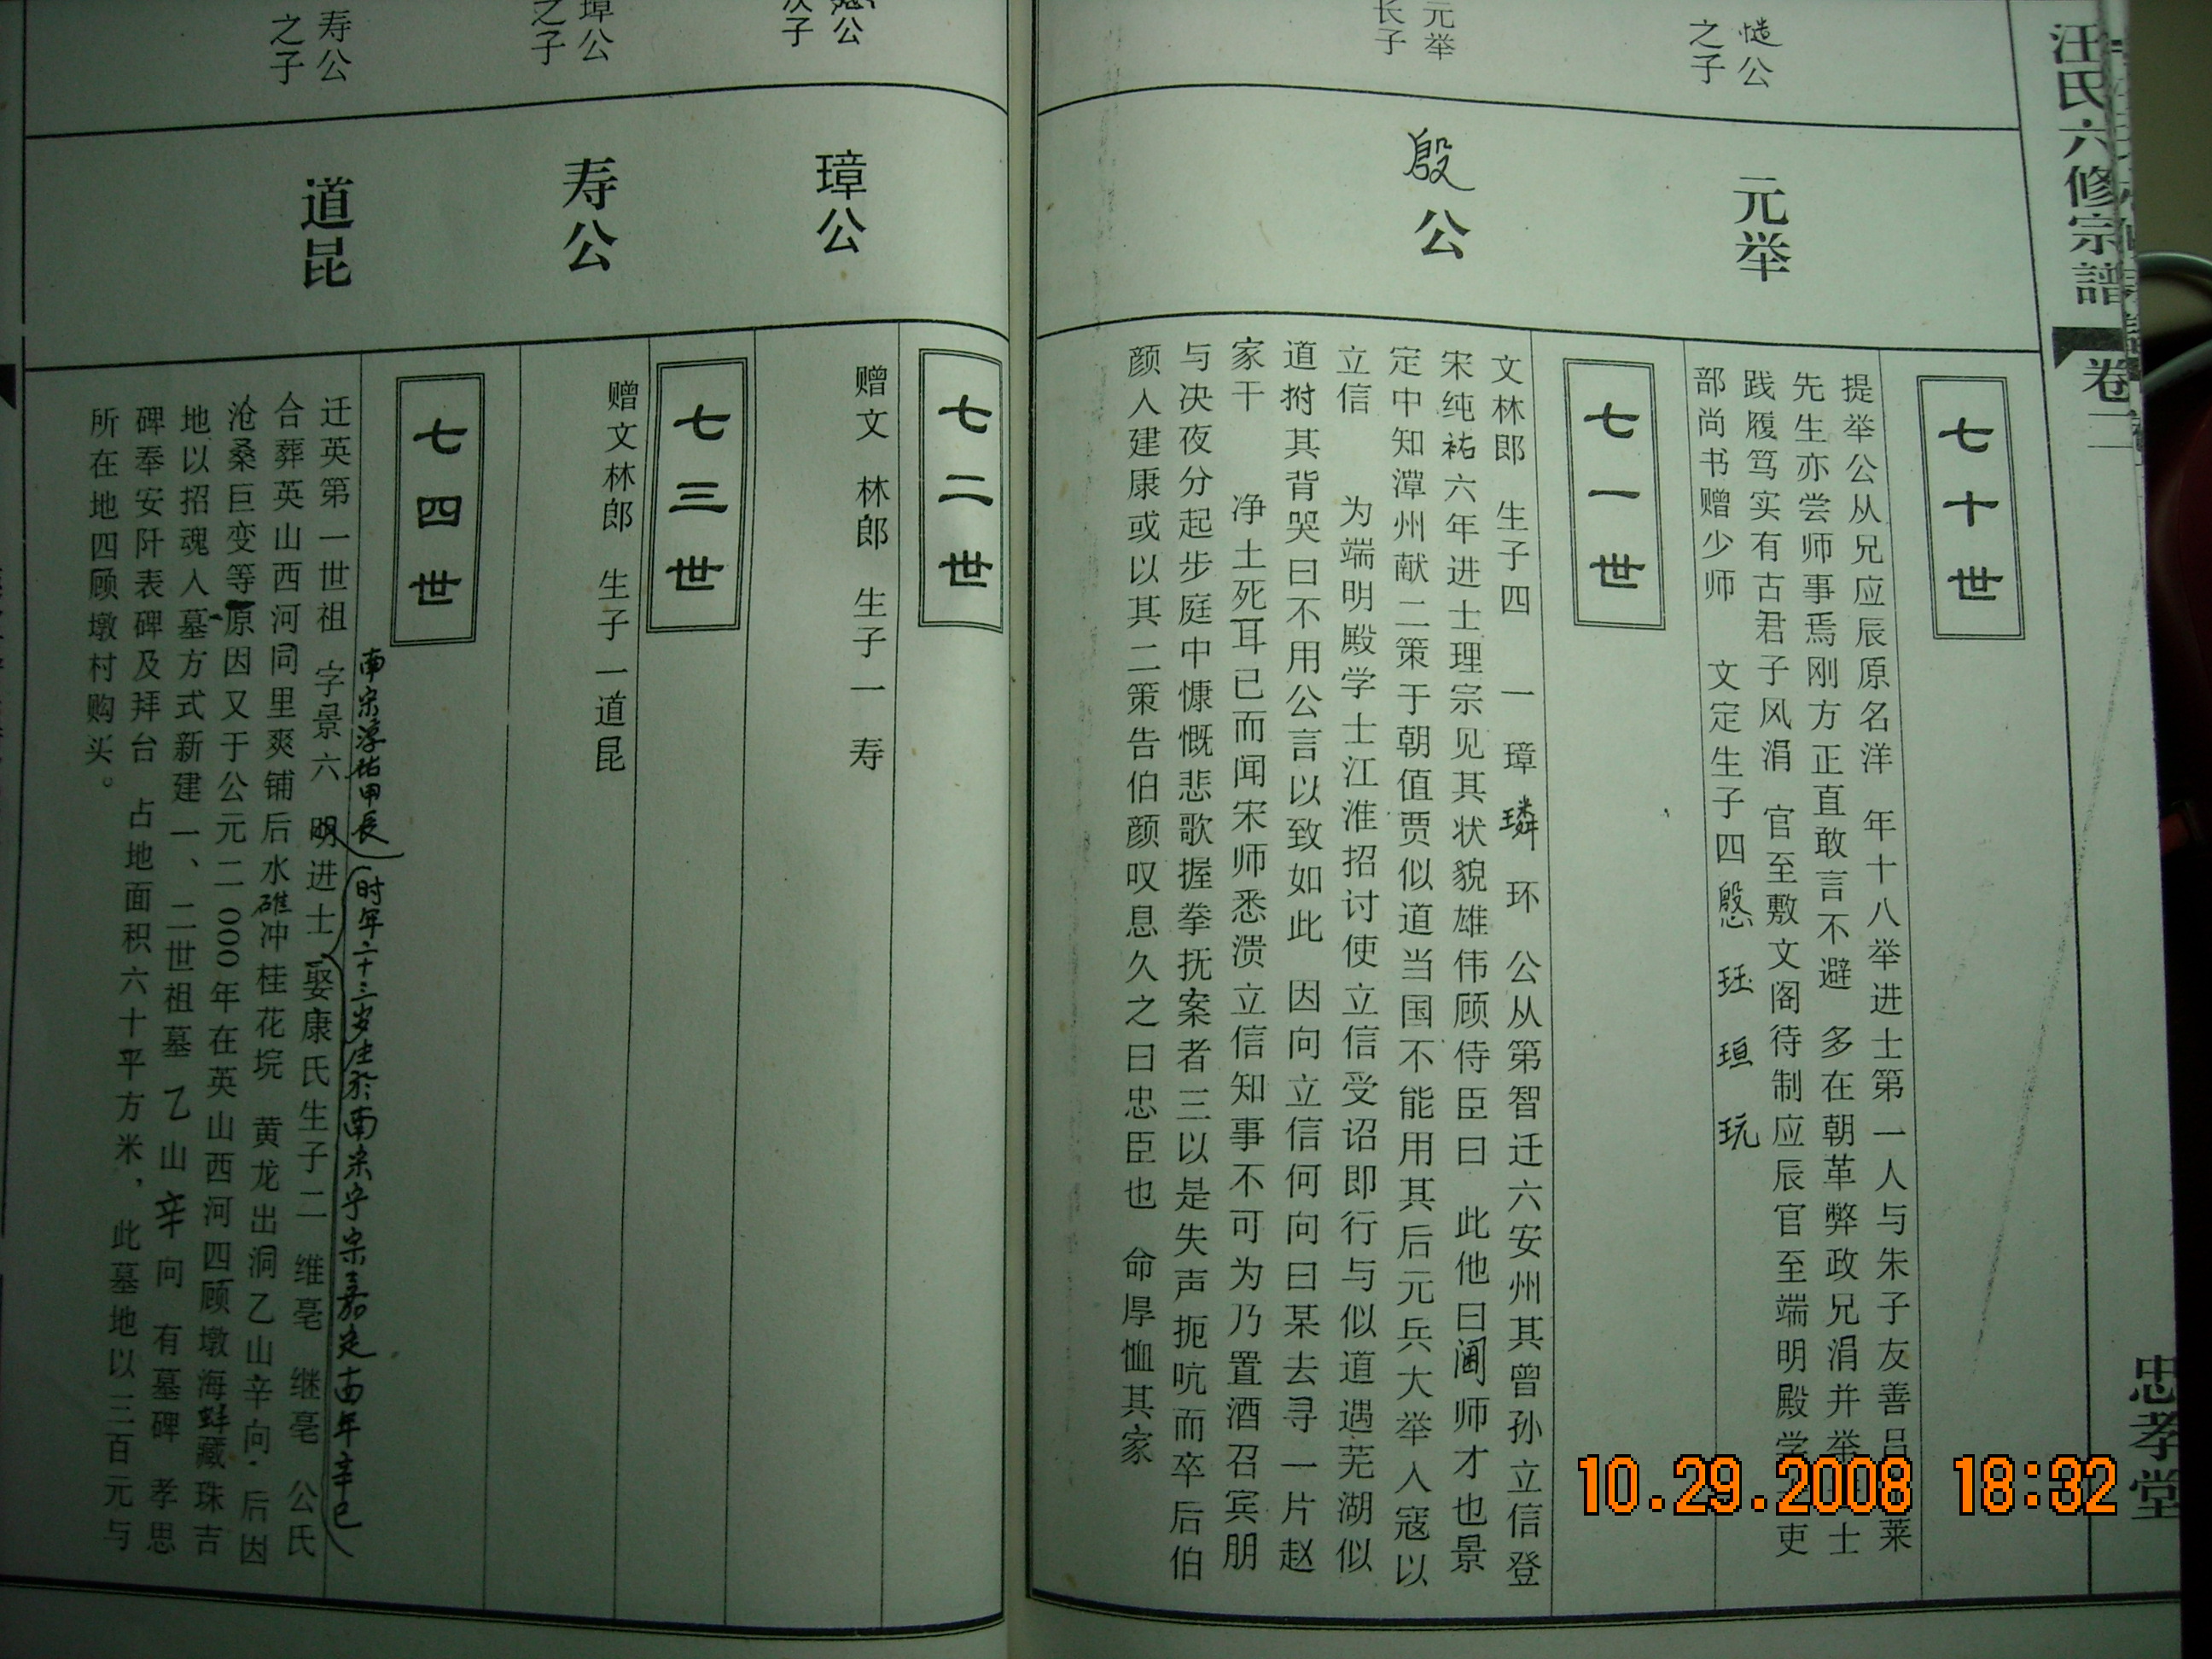 汪氏六修宗譜
卷二
忠孝堂
之子
公
元举
七十世
提举公从兄应辰原名洋 年十八举进士第一人与朱子友善吕 莱
先生亦尝师事焉刚方正直敢言不避 多在朝革弊政兄涓并举 士
践履笃实有古君子风涓 官至敷文阁待制应辰官至端明殿学 吏
部尚书赠少师 文定生子四慇 珏 珦 玩
元举
长子
殷公
七一世
文林郎 生子四 一 璋 璘 环 公从第智迁六安州其曾孙立信登
宋纯祐六年进士理宗见其状貌雄伟顾侍臣曰 此他曰阃师才也景
定中知潭州献二策于朝值贾似道当国不能用其后元兵大举入寇以
立信 为端明殿学士江淮招讨使立信受诏即行与似道遇芜湖似
道拊其背哭曰不用公言以致如此 因向立信何向曰某去寻一片赵
家干 净土死耳已而闻宋师悉溃立信知事不可为乃置酒召宾朋
与决夜分起步庭中慷慨悲歌握拳抚案者三以是失声扼吭而卒后伯
颜人建康或以其二策告伯颜叹息久之曰忠臣也 命厚恤其家
公
次子
璋公
七二世
赠文 林郎 生子一 寿
璋公
之子
寿公
七三世
赠文林郎 生子一道昆
寿公
之子
道昆
七四世
南宋淳祐甲辰
(时年二十三岁生於南宋宁宗嘉定十四年辛巳)
迁英第一世祖 字景六 明进士 娶康氏生子二 维亳 继亳 公氏
合葬英山西河同里爽铺后水碓冲桂花垸 黄龙出洞乙山辛向 后因
沧桑巨变等原因又于公元二000年在英山西河四顾墩海蚌藏珠吉
地以招魂人墓方式新建一、二世祖墓 乙山辛向 有墓碑 孝思
碑奉安阡表碑及拜台 占地面积六十平方米，此墓地以三百元与
所在地四顾墩村购买。
10.29.2008 18:32